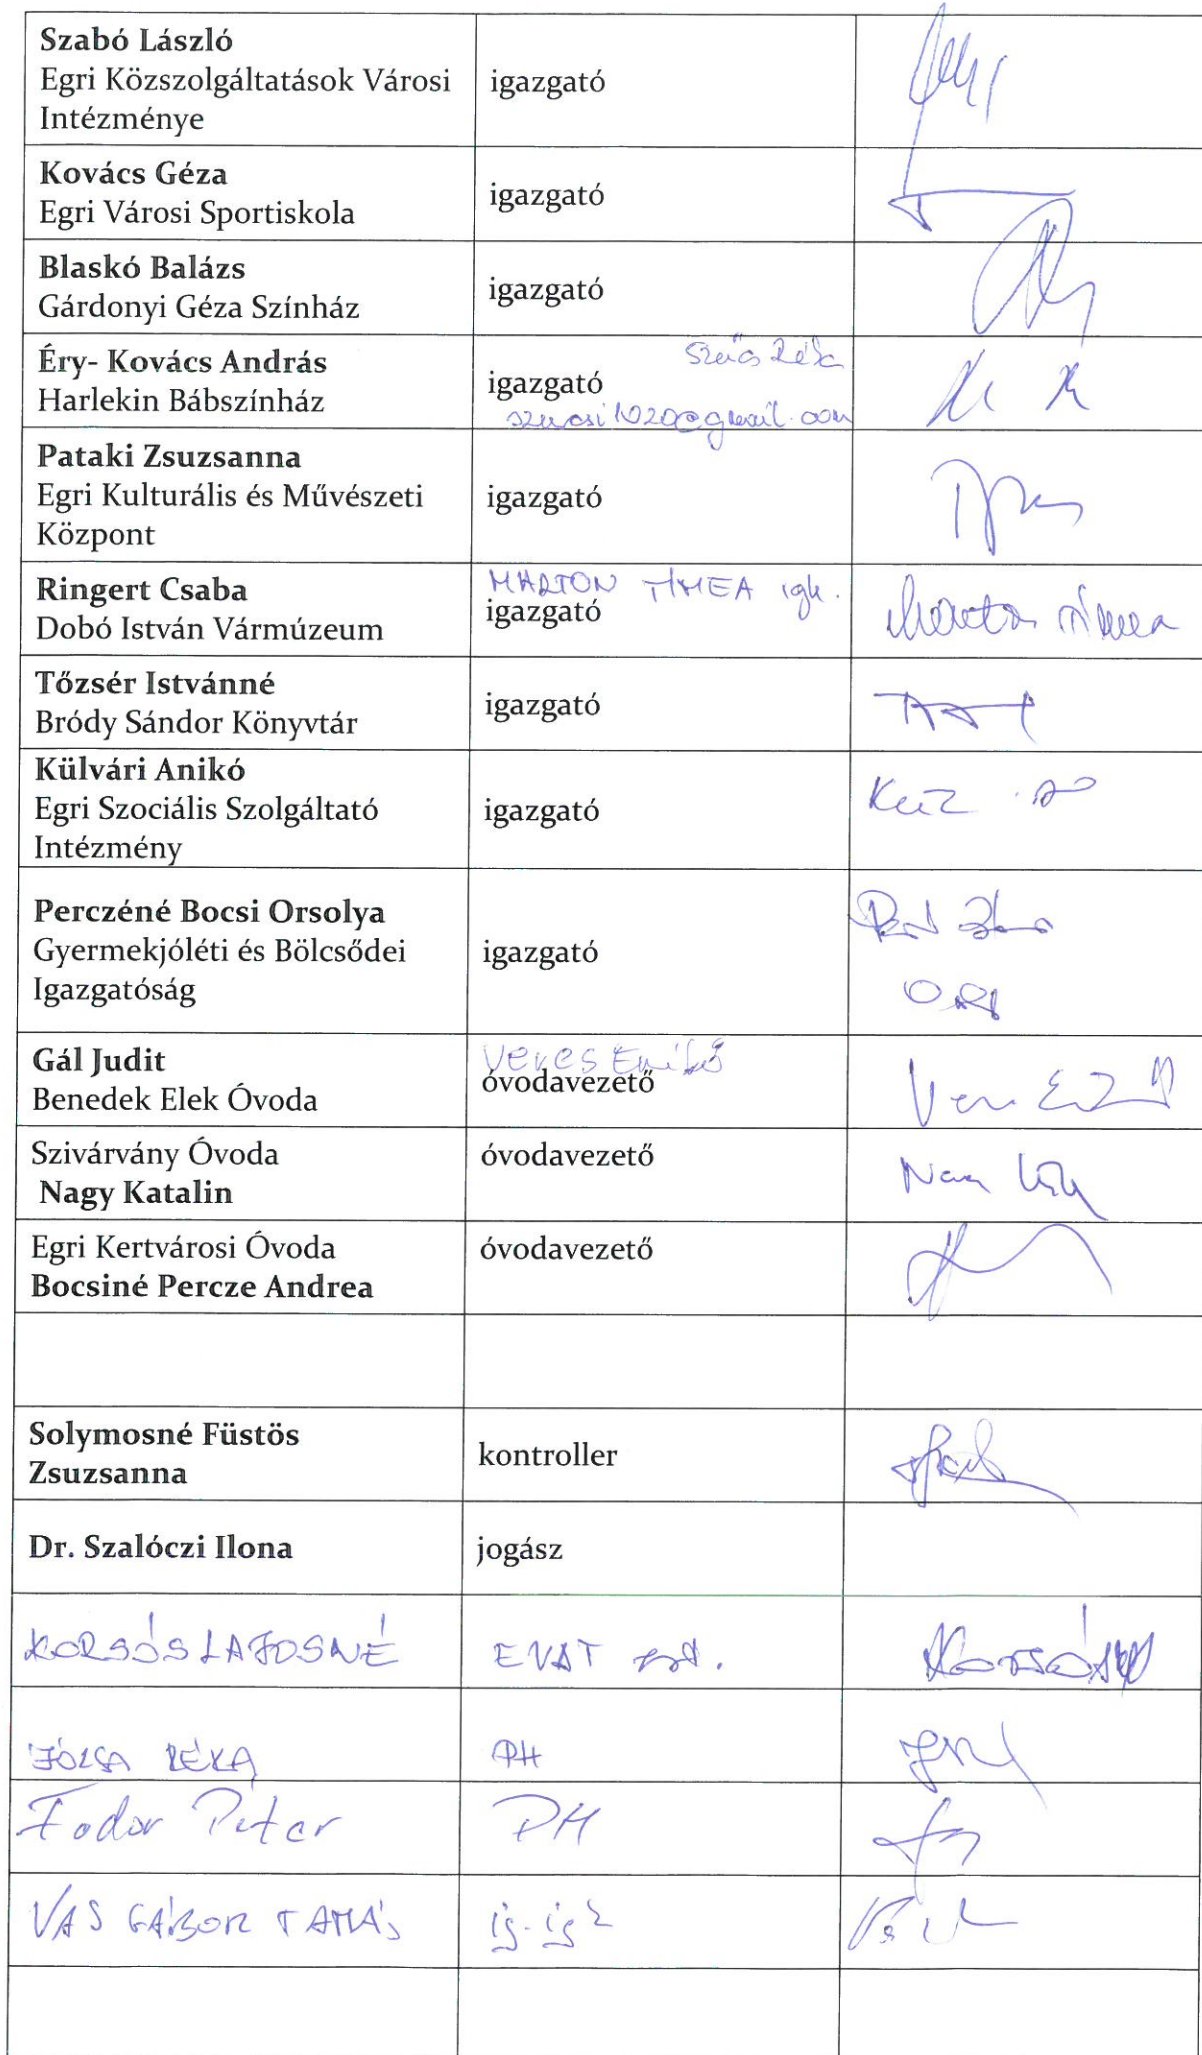 Szabó László
Egri Közszolgáltatások Városi
Intézménye
igazgató
Kovács Géza
Egri Városi Sportiskola
igazgató
Blaskó Balázs
Gárdonyi Géza Színház
igazgató
Éry- Kovács András
Harlekin Bábszínház
igazgató
Pataki Zsuzsanna
Egri Kulturális és Művészeti
Központ
igazgató
Ringert Csaba
Dobó István Vármúzeum
MARTON TÍMEA igh.
igazgató
Marton Tímea
Tőzsér Istvánné
Bródy Sándor Könyvtár
igazgató
Külvári Anikó
Egri Szociális Szolgáltató
Intézmény
igazgató
Perczéné Bocsi Orsolya
Gyermekjóléti és Bölcsődei
Igazgatóság
igazgató
Gál Judit
Benedek Elek Óvoda
Veres Enikő
óvodavezető
Szivárvány Óvoda
Nagy Katalin
óvodavezető
Egri Kertvárosi Óvoda
Bocsiné Percze Andrea
óvodavezető
Solymosné Füstös
Zsuzsanna
kontroller
Dr. Szalóczi Ilona
jogász
KORSÓS LAJOSNÉ
EVAT zrt.
JÓZSA RÉKA
PH
Fodor Péter
PH
VAS GÁBOR TAMÁS